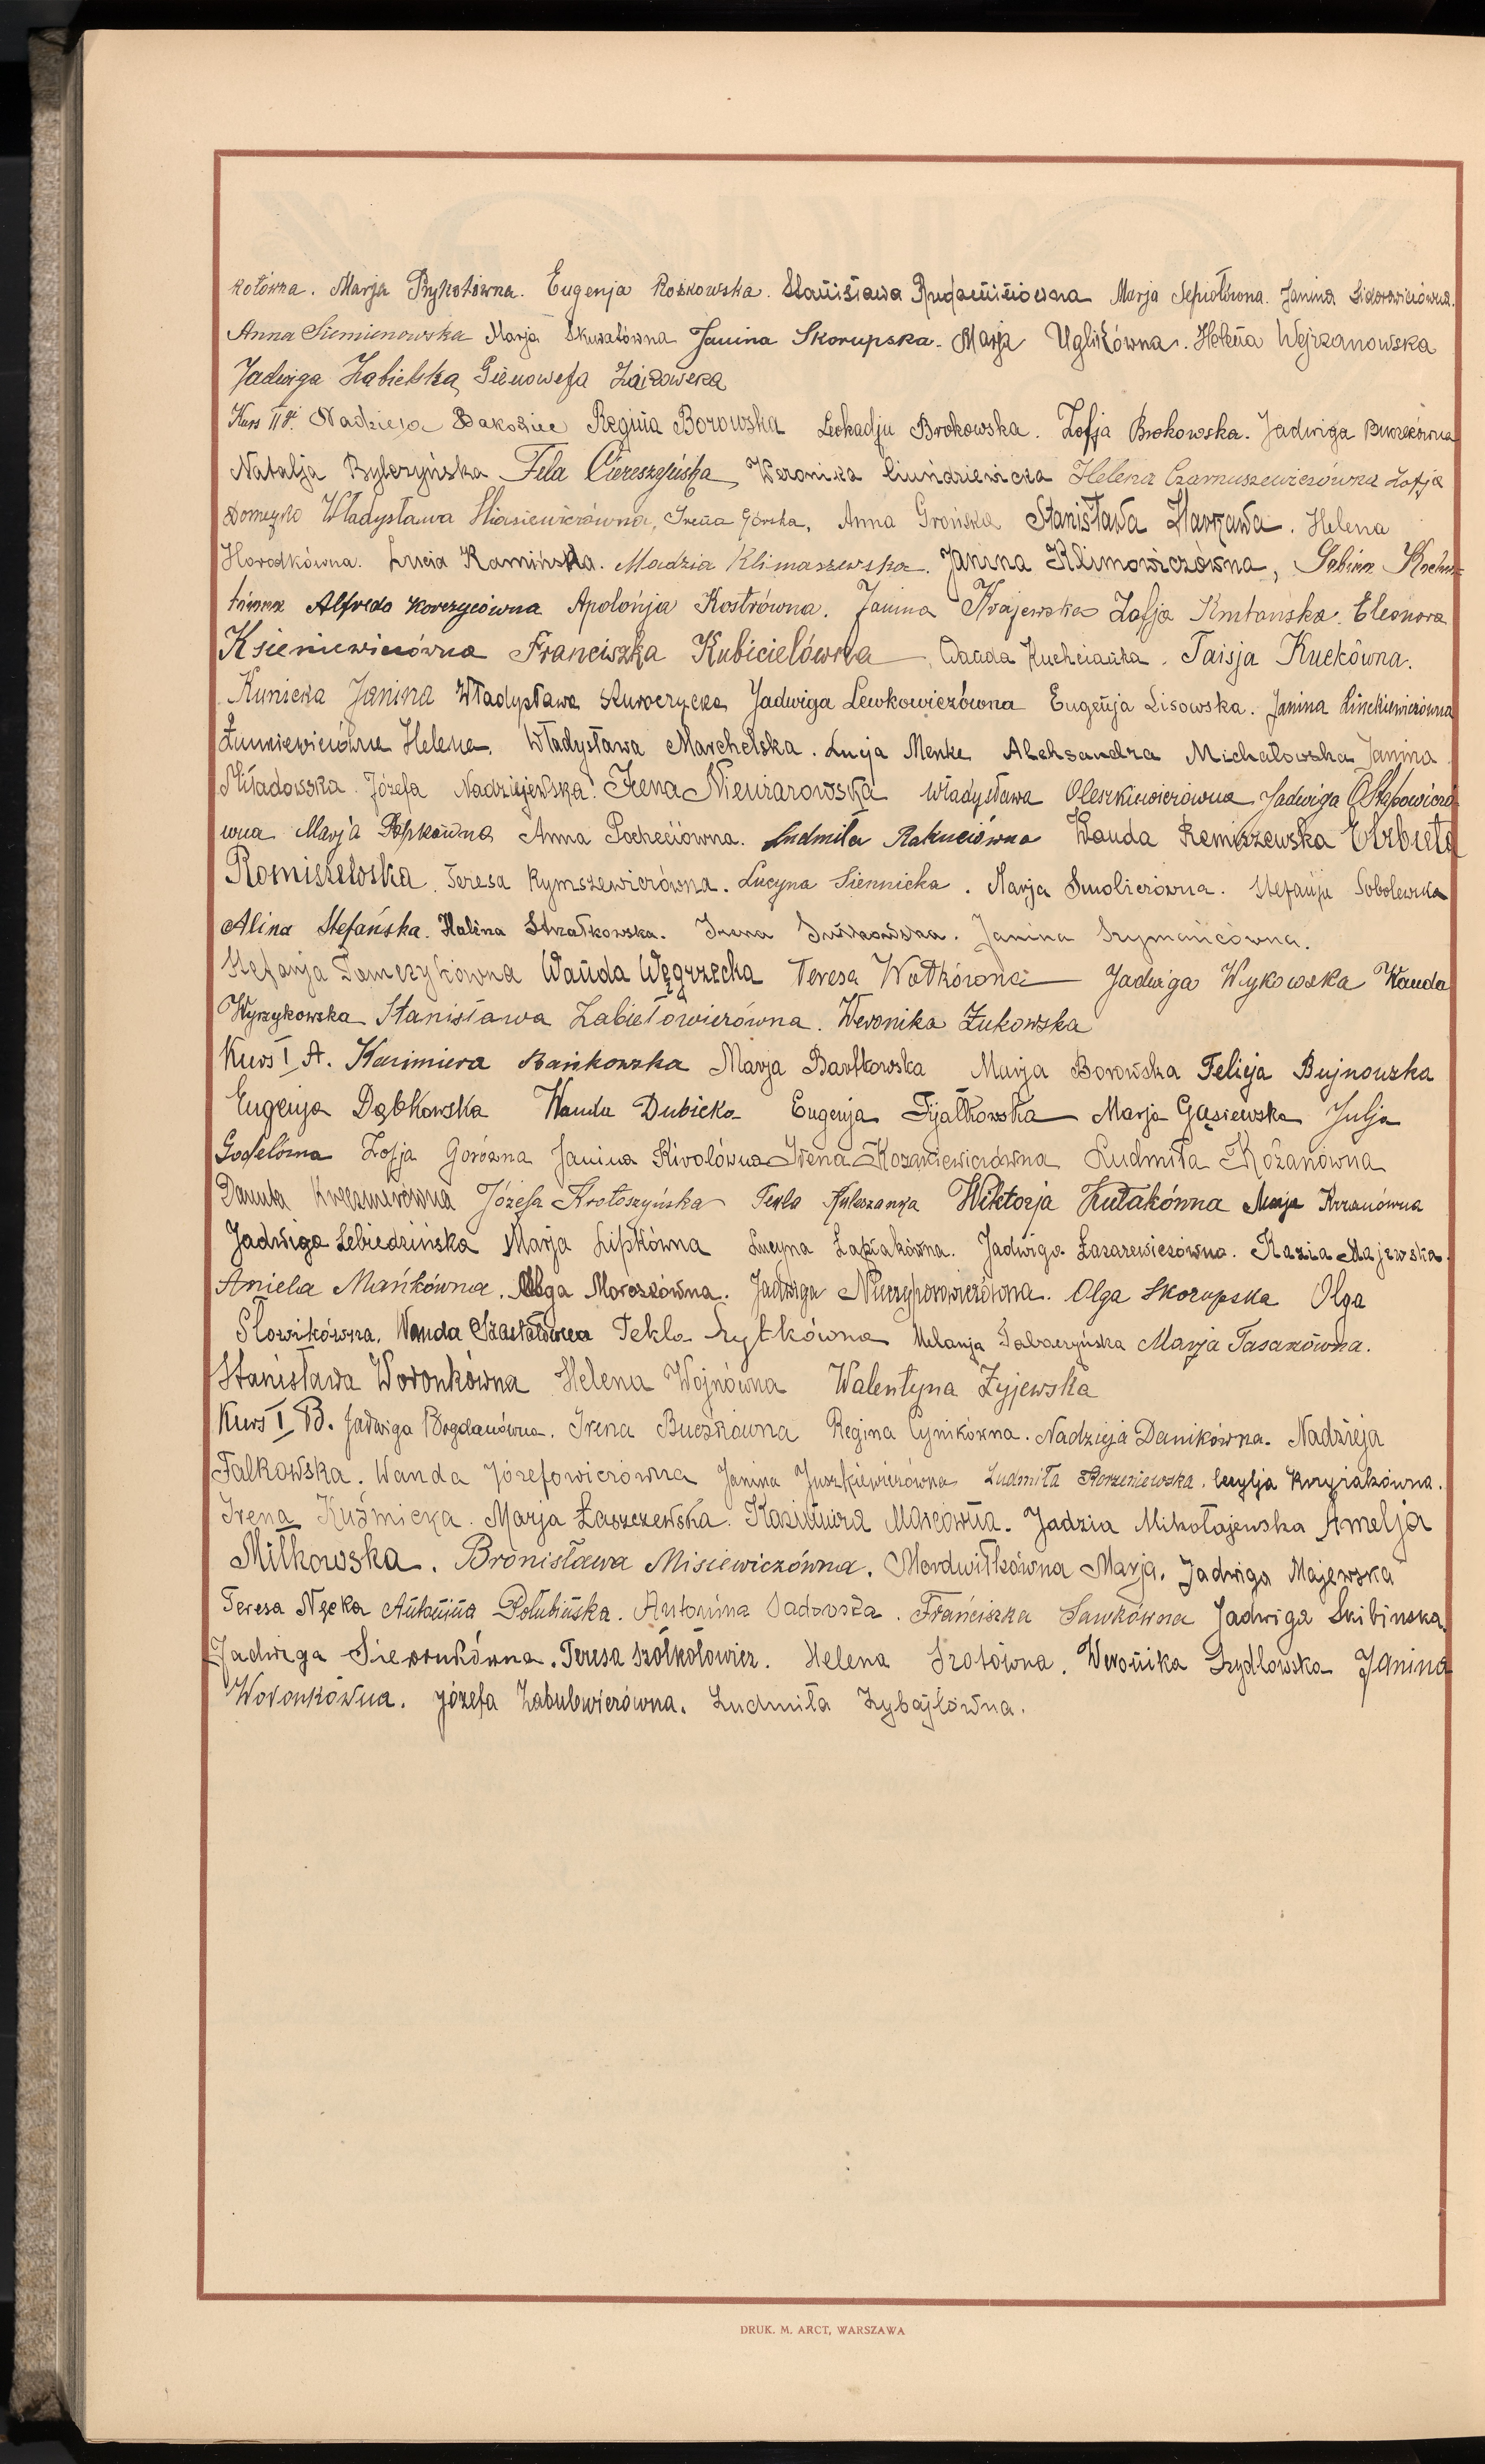 kotówna. Marja Prykotówna. Eugenja Roszkowska. Stanisława Marja Sepiołówna. Janina Sidorowiczówna.
Anna Siemienowska Marja Skwatówna Janina Skorupska. Marja Uglikówna. Helena Wejrzanowska
Jadwiga Zabielska, Gienowefa
Kurs IIgi. Nadzieja Regina Borowska Leokadja Brokowska. Zofja Brokowska. Jadwiga
Natalja Bylczyńska Fela Ciereszyńska, Weronika Ciundziewicka Helena Czarnuszewiczówna Zofja
Domeyko Władysława Irena Górska, Anna Grońska Stanisława Harzawa. Helena
Horodkówna. Łucia Kamińska. Madzia Klimaszewska. Janina Klimowiczówna, Sabina
Alfreda Korczycówna Apolonja Kostrówna. Janina Krajewska Zofja Eleonora
Ksieniewiczówna Franciszka Kubicielówna Wanda Kuchcianka. Taisja Kuckówna.
Kunicka Janina Władysława Jadwiga Lewkowiczówna Eugenja Lisowska. Janina Linckiewiczówna
Łunniewiczówna Helena. Władysława Marchelska. Łucja Menke Aleksandra Michałowska Janina
Miładowska. Józefa Nadziejewska. Irena Władysława Oleszkiewiczówna Jadwiga Ostapowiczó
wna Marja Popkówna Anna Pocheciówna. Ludmiła Rakuciówna Wanda Remiszewska Elżbieta
Romiszewska. Teresa Rymszewiczówna. Lucyna Siennicka. Marja Smoliczówna. Stefanja Sobolewska
Alina Stefańska. Halina Strzałkowska. Irena Janina Szymańcówna.
Stefanja Tomczykówna Wanda Węgrzecka Teresa Wołkówna Jadwiga Wykowska Wanda
Wyrzykowska Stanisława Zabiełowiczówna. Weronika Żukowska
Kurs I A. Kazimiera Bańkowska Marja Bartkowska Marja Borowska Felicja Bujnowska
Eugenja Dąbkowska Wanda Dubicka Eugenja Fijałkowska Marja Gąsiewska Julja
Godelówna Zofja Gorówna Janina Kiwolówna Irena Kozakiewiczówna Ludmiła Kożanówna
Danuta Józefa Krotoszyńska Tekla Kuleszanka Wiktorja Kułakówna Marja Krzanówna
Jadwiga Lebiedzińska Marja Lipkówna Lucyna Łapiakówna. Jadwiga Łazarewiczówna. Kazia Majewska.
Aniela Mańkówna. Olga Morozówna. Jadwiga Niczyporowiczówna. Olga Skorupska Olga
Słowikówna. Wanda Tekla Sytkówna Melanja Tabaczyńska Marja Tasarówna.
Stanisława Woronkówna Helena Wojnówna Walentyna Żyjewska
Kurs I B. Jadwiga Bogdanówna. Irena Buczkówna Regina Cynikówna. Nadzieja Danikówna. Nadzieja
Falkowska. Wanda Józefowiczówna Janina Juszkiewiczówna Ludmiła Korzeniewska. Cecylja Kuryiakówna.
Irena Kuźmicka. Marja Łaszczewska. Kazimiera Marcówna. Jadzia Mikołajewska Amelja
Miłkowska. Bronisława Misiewiczówna. Mordwiłkówna Marja. Jadwiga Majewska
Teresa Nęcka Antonina Połubińska. Antonina Sadowska. Franciszka Sawkówna Jadwiga Skibinska.
Jadwiga Sieronkówna. Teresa Szółkołowicz. Helena Szotówna. Weronika Szydlowska Janina
Woronkówna. Józefa Zabulewiczówna. Ludmiła Zybajłówna.
DRUK. M. ARCT, WARSZAWA